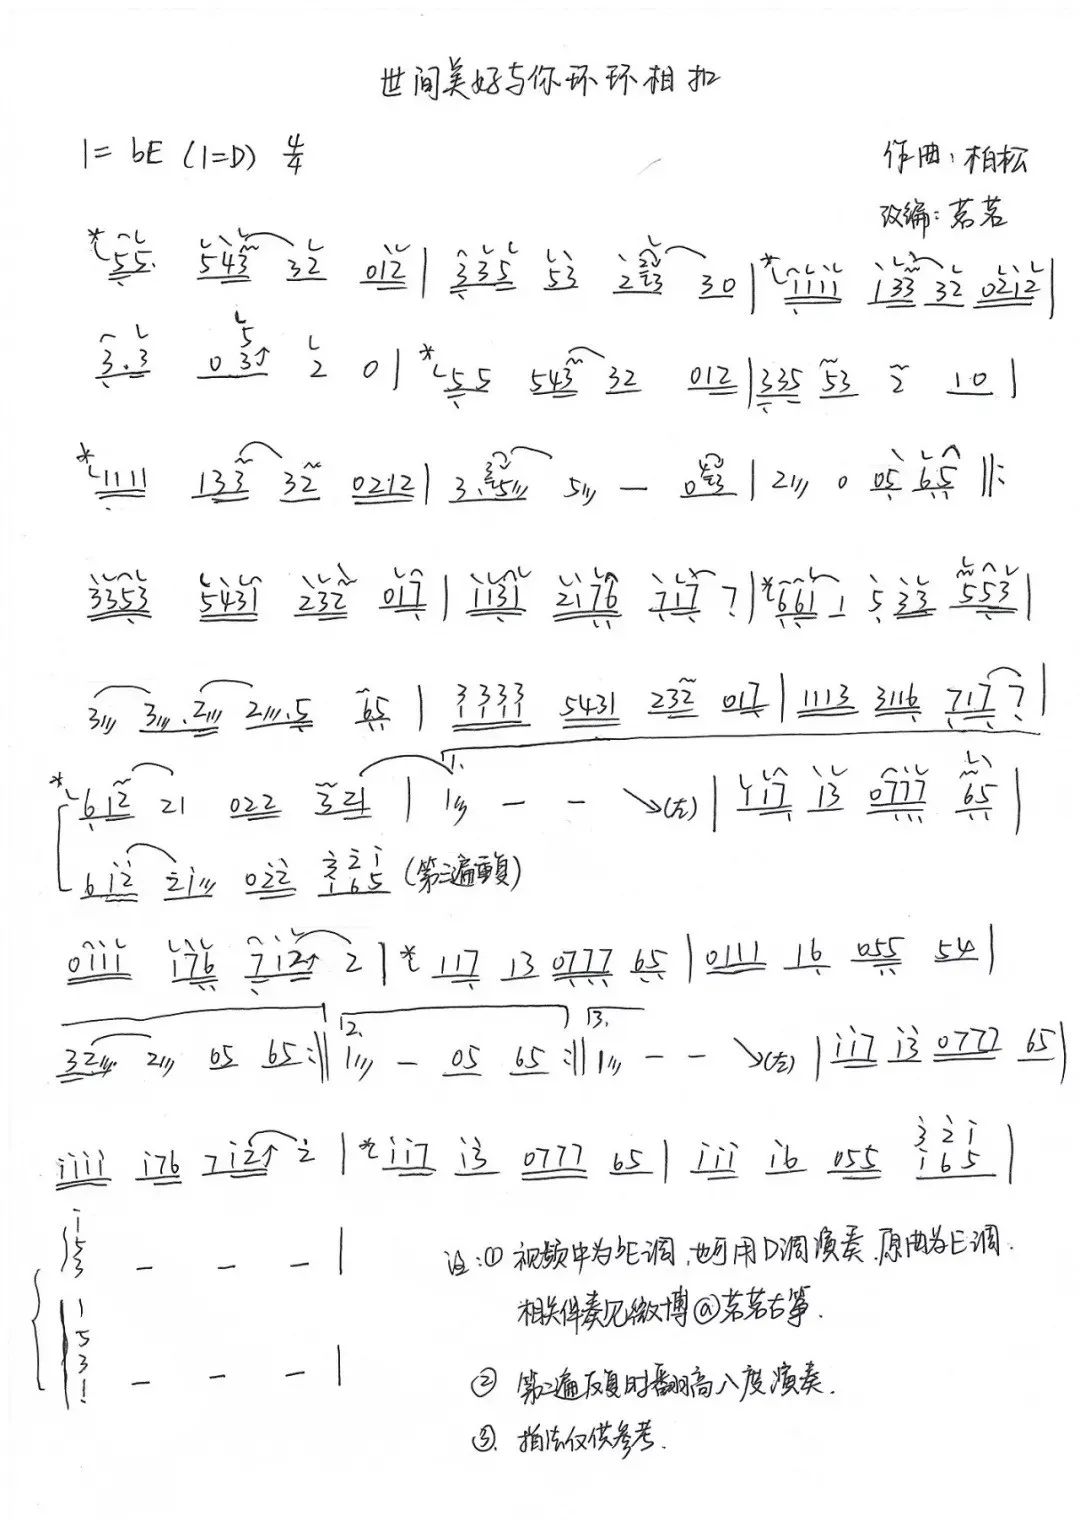 世间美好与你环环相扣
1= bE (1=D) 4/4
作曲:柏松
改编:茗茗
* 55. 543 32 012 | 335 53 223 30 | * 1111 133 32 0212 |
3.3 0 35↑ 2 0 | * 55 543 32 012 | 335 53 2 10 |
* 1111 133 32 0212 | 3. 5 5 — 0 | 2 0 05 65 ‖:
3353 5431 232 017 | 1131 2176 717 7 | * 661 1 5 33 553 |
3 3.2 2.5 65 | 3333 5431 232 017 | 1113 3116 717 7 |
* 612 21 022 321 | 1. 1 — — ↘(左) | 117 13 0777 65 |
612 21 022 321 165 (第三遍重复)
0111 176 712↑ 2 | * 117 13 0777 65 | 0111 16 055 54 |
32 2 05 65 :‖ 2. 1 — 05 65 :‖ 3. 1 — — ↘(左) | 117 13 0777 65 |
1111 176 712↑ 2 | * 117 13 0777 65 | 111 16 055 321 165 |
1 5 3 — — — |
1 5 3 1 — — — |
注:① 视频中为bE调,也可用D调演奏,原曲为E调.
相关伴奏见微博@茗茗古筝.
② 第二遍反复时翻高八度演奏.
③. 指法仅供参考.